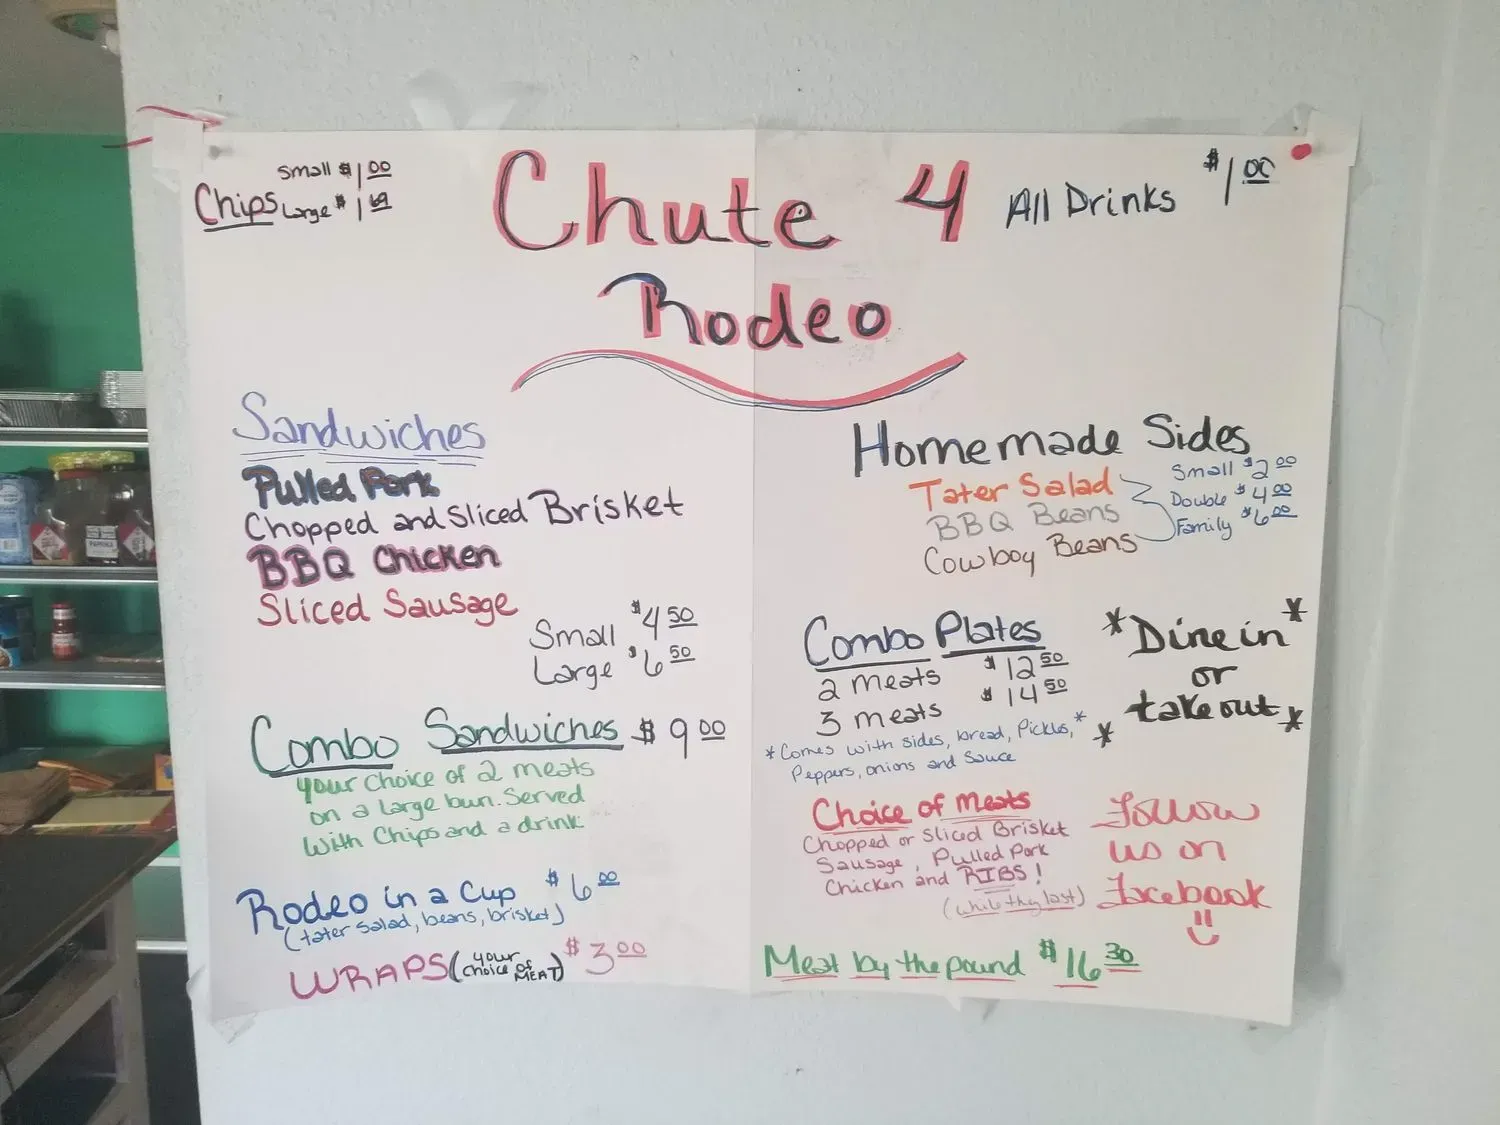 Small $1.00
Chips Large $1.69
Chute 4
Rodeo
All Drinks $1.00
Sandwiches
Pulled Pork
Chopped and Sliced Brisket
BBQ Chicken
Sliced Sausage
Small $4.50
Large $6.50
Combo Sandwiches $9.00
your choice of 2 meats
on a large bun. Served
with Chips and a drink
Rodeo in a Cup $6.00
(tater salad, beans, brisket)
WRAPS (your choice of MEAT) $3.00
Homemade Sides
Tater Salad
BBQ Beans
Cowboy Beans
Small $2.00
Double $4.00
Family $6.00
Combo Plates
2 meats $12.50
3 meats $14.50
*Comes with sides, bread, Pickles,*
Peppers, onions and Sauce
*Dine in*
or
*take out*
Choice of Meats
Chopped or Sliced Brisket
Sausage, Pulled Pork
Chicken and RIBS!
(while they last)
Follow
us on
Facebook
Meat by the pound $16.30
PAPRIKA